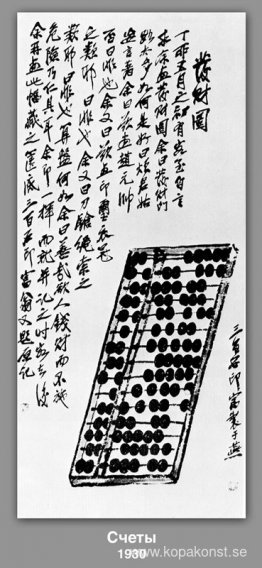 發財圖
丁卯五月之初有客至自言
求余畫發財圖余曰發財門
路太多如何是好曰煩君姑
妄言者余曰欲畫趙元帥
否曰非也余又曰欲畫印璽衣冠
之類耶曰非也余又曰刀鎗繩索之
類耶曰非也算盤何如余曰善哉欲人錢財而不施
危險乃仁具耳余即一揮而就並記之時客去後
余再畫此幅藏之篋底三百石印富翁又題原記
三百石印富翁製于燕
Счеты
1930
www.kopakonst.se